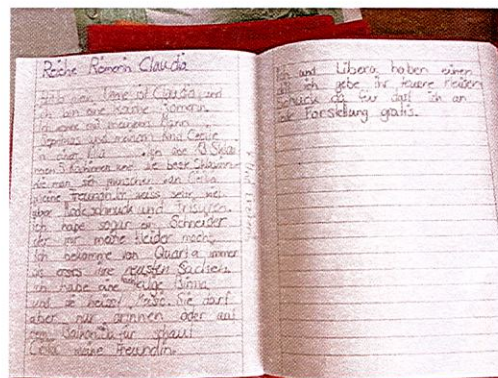 Reiche Römerin Claudia
Hallo mein Name ist Claudia und
ich bin eine reiche Römerin.
Ich wohne mit meinem Mann
und meinem Kind Cecilie
in einer Villa. Ich habe 13 Skla
und die beste
die man sich wünschen kann Celia
meine weiss sehr viel
über Mode schmuck und Frisuren.
ich habe sogar ein Schneider
der mir meine kleider macht.
Ich bekomme von Quarta immer
als erste ihre neusten Sachen.
ich habe eine Binna
und sie heisst Sie darf
aber nur drinnen oder auf
Balkon dafür
Celia meine Freundin.
Ich und Libera haben einen
ich gebe ihr teuere kleider
Schuck da für darf ich an
Vorstellung gratis.